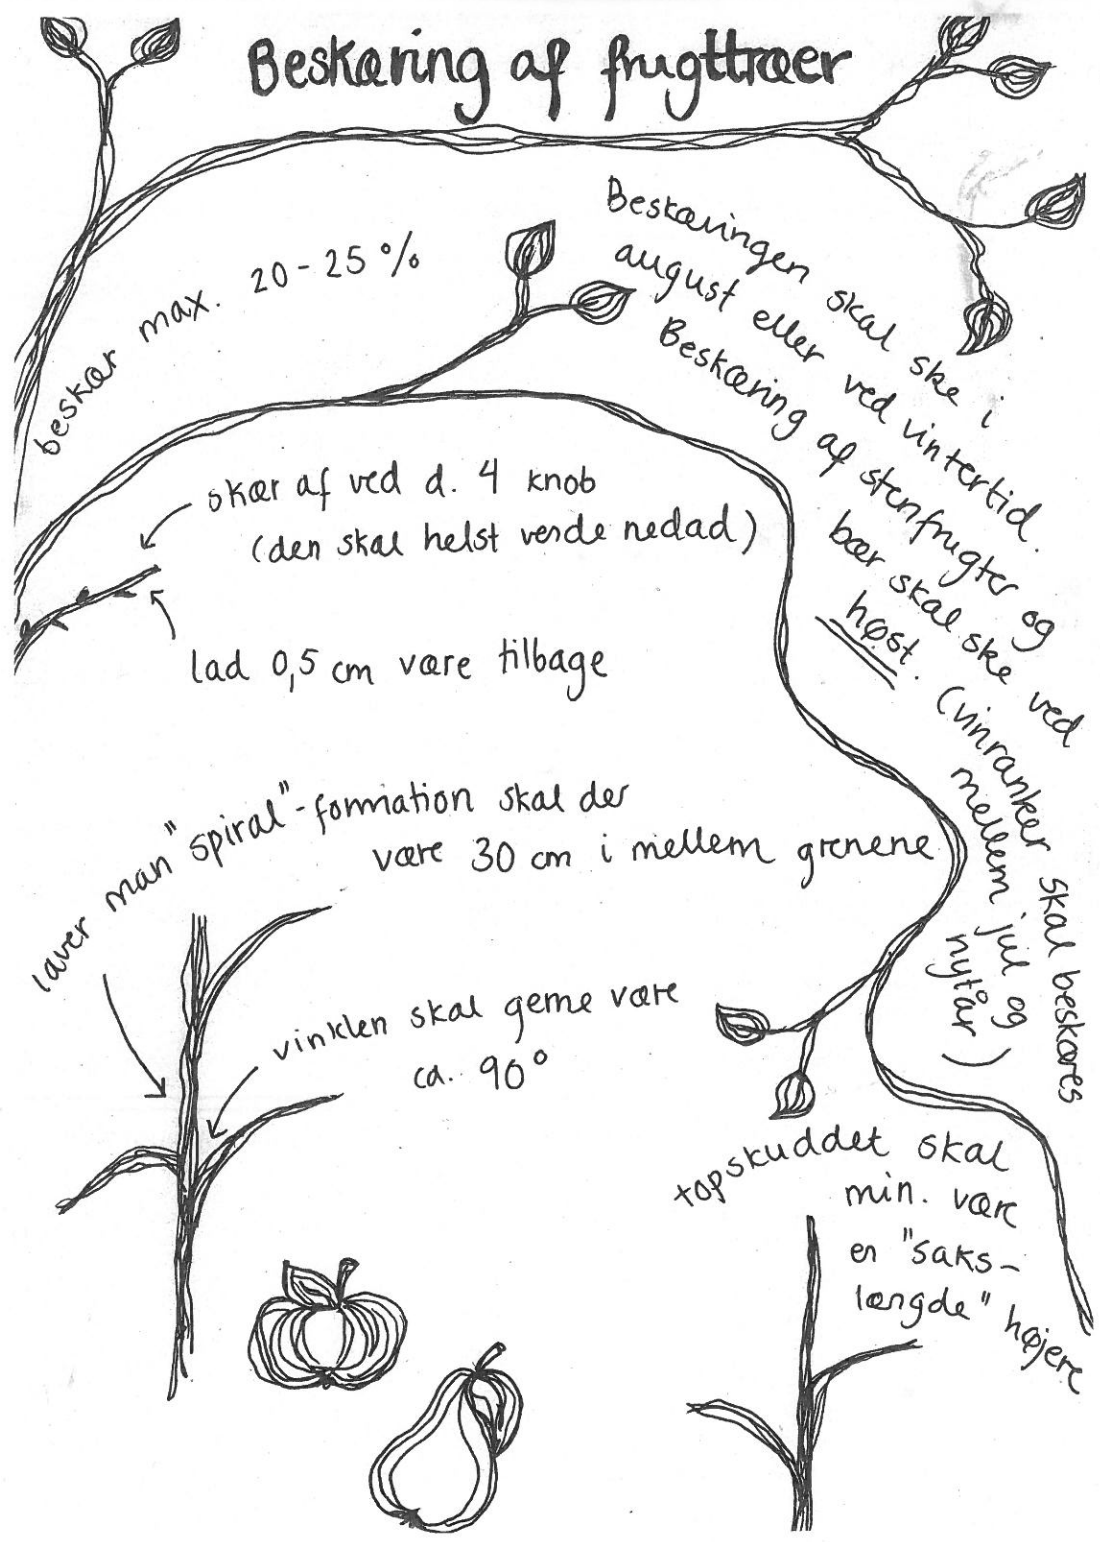 Beskæring af frugttræer
beskær max. 20-25 %
Beskæringen skal ske i
august eller ved vintertid.
Beskæring af stenfrugter og
bær skal ske ved
høst. (vinranker skal beskæres
mellem jul og
nytår)
skær af ved d. 4 knob
(den skal helst vende nedad)
lad 0,5 cm være tilbage
laver man "spiral"-formation skal der
være 30 cm i mellem grenene
vinklen skal gerne være
ca. 90°
topskuddet skal
min. være
en "saks-
længde" højere